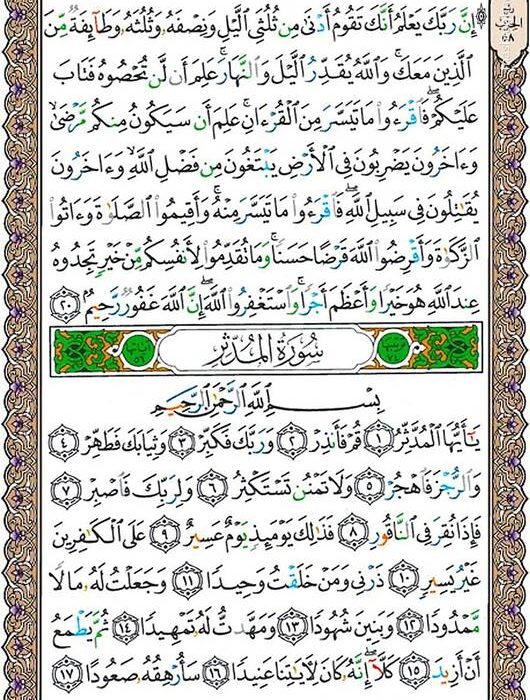 ۞ إِنَّ رَبَّكَ يَعْلَمُ أَنَّكَ تَقُومُ أَدْنَىٰ مِن ثُلُثَىِ ٱلَّيْلِ وَنِصْفَهُۥ وَثُلُثَهُۥ وَطَآئِفَةٌ مِّنَ
ٱلَّذِينَ مَعَكَ ۚ وَٱللَّهُ يُقَدِّرُ ٱلَّيْلَ وَٱلنَّهَارَ ۚ عَلِمَ أَن لَّن تُحْصُوهُ فَتَابَ
عَلَيْكُمْ ۖ فَٱقْرَءُوا۟ مَا تَيَسَّرَ مِنَ ٱلْقُرْءَانِ ۚ عَلِمَ أَن سَيَكُونُ مِنكُم مَّرْضَىٰ ۙ
وَءَاخَرُونَ يَضْرِبُونَ فِى ٱلْأَرْضِ يَبْتَغُونَ مِن فَضْلِ ٱللَّهِ ۙ وَءَاخَرُونَ
يُقَـٰتِلُونَ فِى سَبِيلِ ٱللَّهِ ۖ فَٱقْرَءُوا۟ مَا تَيَسَّرَ مِنْهُ ۚ وَأَقِيمُوا۟ ٱلصَّلَوٰةَ وَءَاتُوا۟
ٱلزَّكَوٰةَ وَأَقْرِضُوا۟ ٱللَّهَ قَرْضًا حَسَنًا ۚ وَمَا تُقَدِّمُوا۟ لِأَنفُسِكُم مِّنْ خَيْرٍ تَجِدُوهُ
عِندَ ٱللَّهِ هُوَ خَيْرًا وَأَعْظَمَ أَجْرًا ۚ وَٱسْتَغْفِرُوا۟ ٱللَّهَ ۖ إِنَّ ٱللَّهَ غَفُورٌ رَّحِيمٌۢ ٢٠
سُورَةُ المُدَّثِّر
بِسْمِ ٱللَّهِ ٱلرَّحْمَـٰنِ ٱلرَّحِيمِ
يَـٰٓأَيُّهَا ٱلْمُدَّثِّرُ ١ قُمْ فَأَنذِرْ ٢ وَرَبَّكَ فَكَبِّرْ ٣ وَثِيَابَكَ فَطَهِّرْ ٤
وَٱلرُّجْزَ فَٱهْجُرْ ٥ وَلَا تَمْنُن تَسْتَكْثِرُ ٦ وَلِرَبِّكَ فَٱصْبِرْ ٧
فَإِذَا نُقِرَ فِى ٱلنَّاقُورِ ٨ فَذَٰلِكَ يَوْمَئِذٍ يَوْمٌ عَسِيرٌ ٩ عَلَى ٱلْكَـٰفِرِينَ
غَيْرُ يَسِيرٍ ١٠ ذَرْنِى وَمَنْ خَلَقْتُ وَحِيدًا ١١ وَجَعَلْتُ لَهُۥ مَالًا
مَّمْدُودًا ١٢ وَبَنِينَ شُهُودًا ١٣ وَمَهَّدتُّ لَهُۥ تَمْهِيدًا ١٤ ثُمَّ يَطْمَعُ
أَنْ أَزِيدَ ١٥ كَلَّآ ۖ إِنَّهُۥ كَانَ لِـَٔايَـٰتِنَا عَنِيدًا ١٦ سَأُرْهِقُهُۥ صَعُودًا ١٧